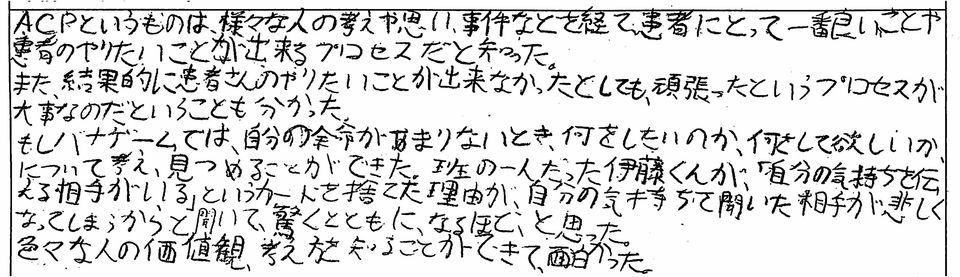 ACPというものは、様々な人の考えや思い、事件などを経て、患者にとって一番良いことや
患者のやりたいことが出来るプロセスだと知った。
また、結果的に患者さんのやりたいことが出来なかったとしても、頑張ったというプロセスが
大事なのだということも分かった。
もしバナゲームでは、自分の余命があまりないとき、何をしたいのか、何をして欲しいか、
について考え、見つめることができた。班の一人だった伊藤くんが、「自分の気持ちを伝
える相手がいる」というカードを捨てた理由が、自分の気持ちを聞いた相手が悲しく
なってしまうからと聞いて、驚くとともに、なるほど、と思った。
色々な人の価値観、考えを知ることができて、面白かった。